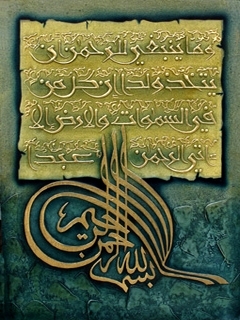 وما ينبغي للرحمن ان
يتخذ ولدا ان كل من
في السموات والارض الا
اتي الرحمن عبدا
بسم الله الرحمن الرحيم